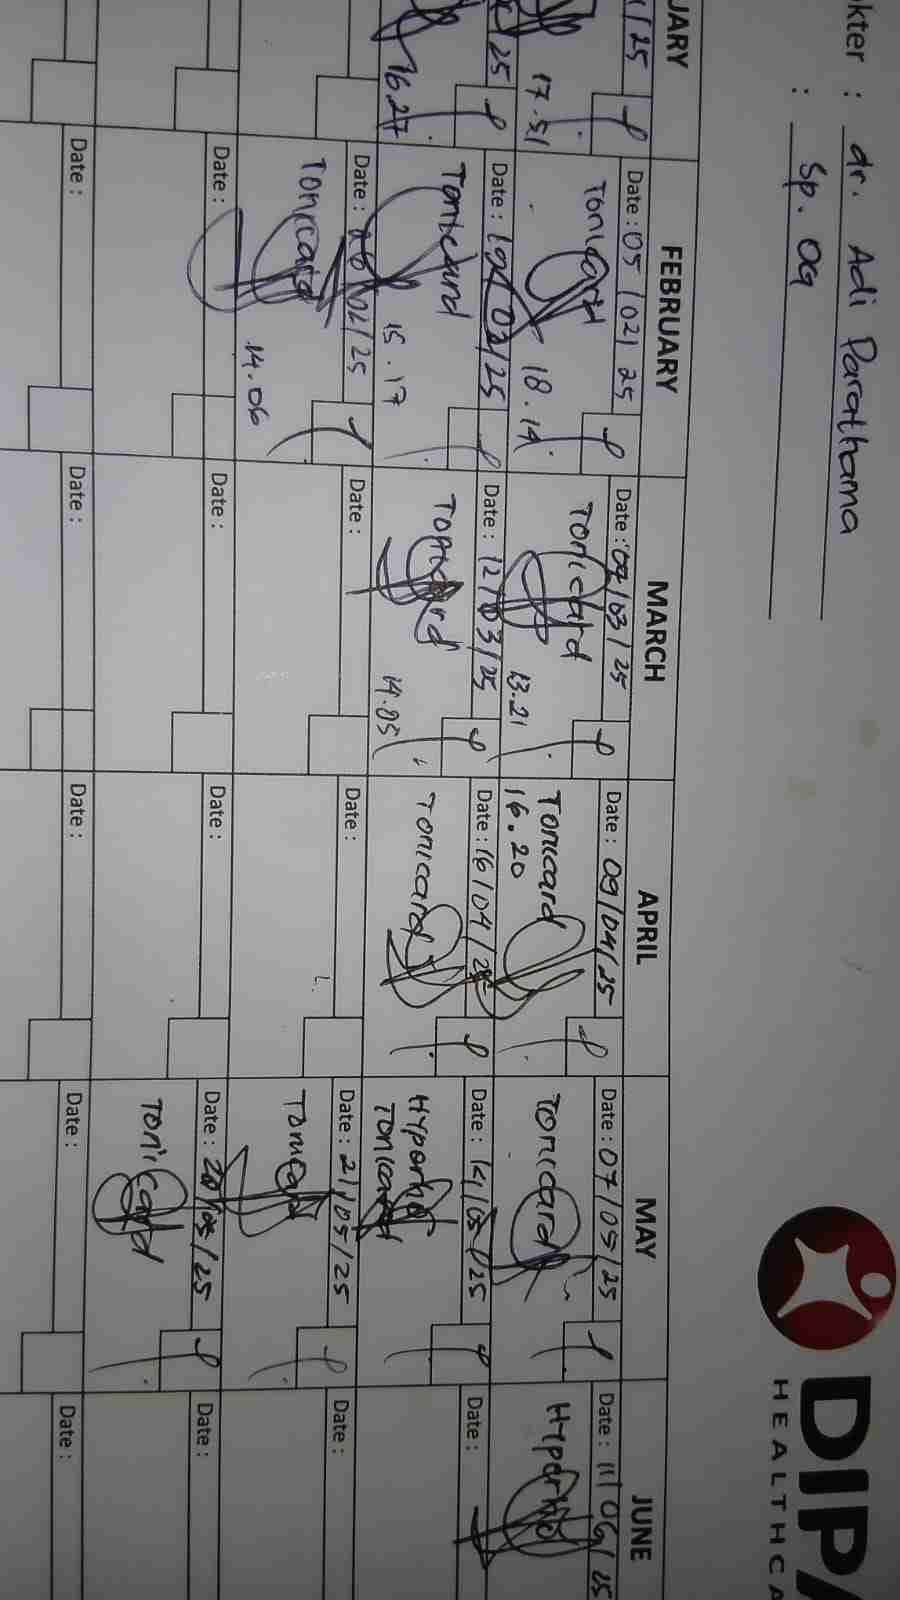 DIPA
HEALTHCA
okter : dr. Adi Parathama
: Sp. OG
UARY
FEBRUARY
MARCH
APRIL
MAY
JUNE
/25
17.51
Date : 05/02/25
Tonicard
18.14
Date : 07/03/25
Tonicard
13.21
Date : 09/04/25
Tonicard
16.20
Date : 07/05/25
Tonicard
Date : 11/06/25
Hyporhd
/25
16.27
Date : 19/02/25
Tonicard
15.17
Date : 12/03/25
Tonicard
14.05
Date : 16/04/25
Tonicard
Date : 14/05/25
Hyporhd
Tonicard
Date :
Date : 26/02/25
Tonicard
14.06
Date :
Date :
Date : 21/05/25
Tonicard
Date :
Date :
Date :
Date :
Date : 28/05/25
Tonicard
Date :
Date :
Date :
Date :
Date :
Date :